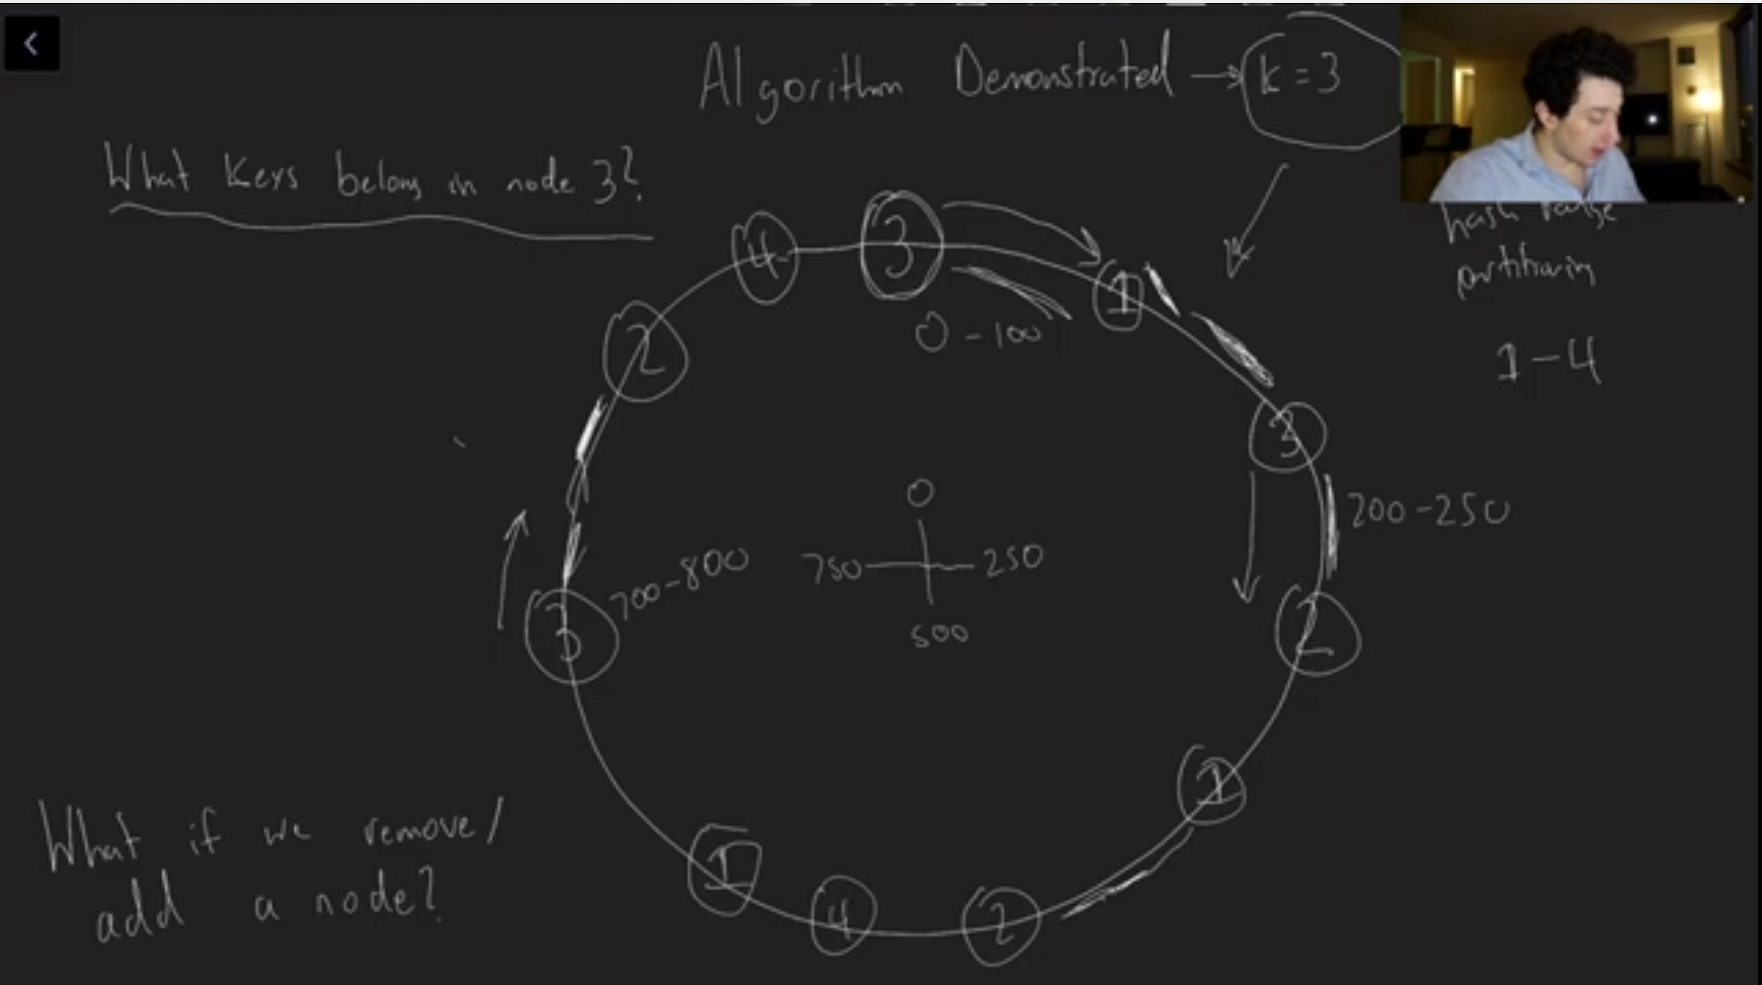 Algorithm Demonstrated → k = 3
What keys belong in node 3?
hash range
partitioning
1-4
4
3
1
2
0-100
3
200-250
0
750
250
500
700-800
3
2
1
1
4
2
What if we remove/
add a node?